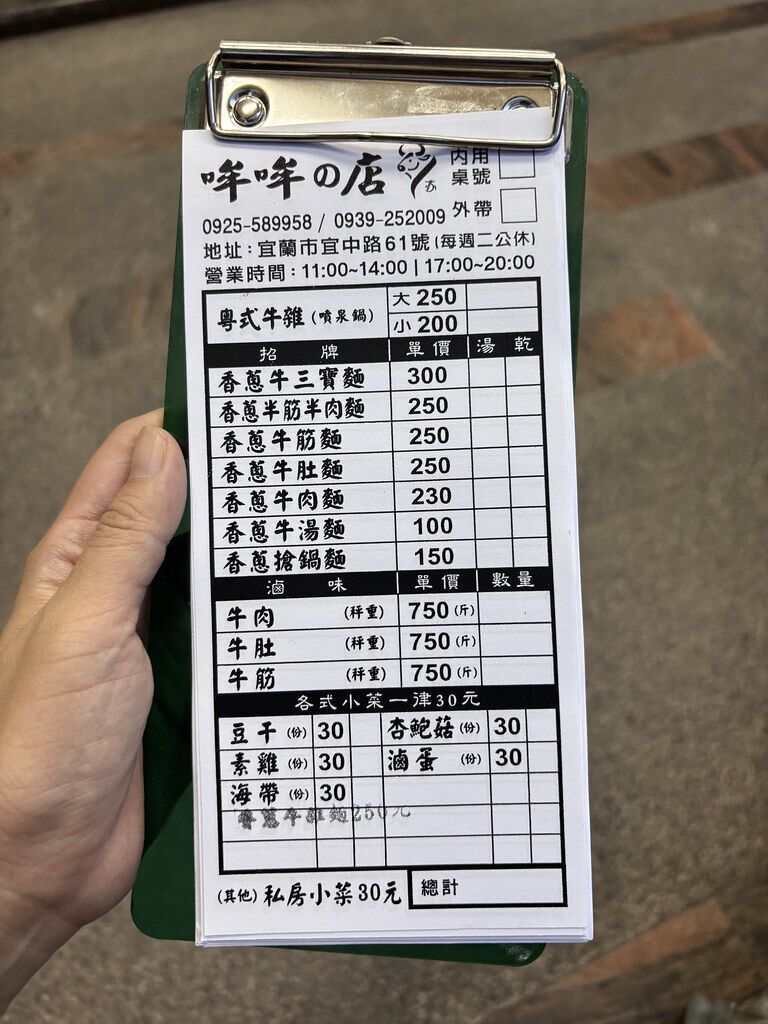 哞哞の店
內用
桌號
外帶
0925-589958 / 0939-252009
地址：宜蘭市宜中路61號(每週二公休)
營業時間：11:00~14:00 | 17:00~20:00
粵式牛雜(噴泉鍋) 大 250
小 200
招牌 單價 湯 乾
香蔥牛三寶麵 300
香蔥半筋半肉麵 250
香蔥牛筋麵 250
香蔥牛肚麵 250
香蔥牛肉麵 230
香蔥牛湯麵 100
香蔥搶鍋麵 150
滷味 單價 數量
牛肉 (秤重) 750(斤)
牛肚 (秤重) 750(斤)
牛筋 (秤重) 750(斤)
各式小菜一律30元
豆干(份) 30 杏鮑菇(份) 30
素雞(份) 30 滷蛋(份) 30
海帶(份) 30
香蔥牛雜麵250元
(其他)私房小菜30元 總計